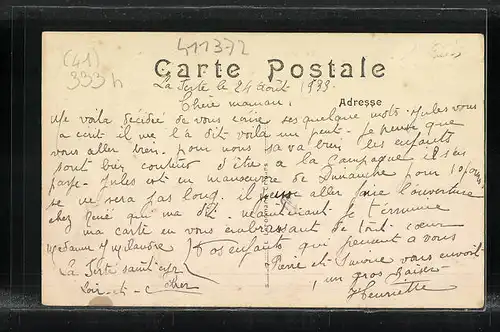 (41)
333 h
411372
Carte Postale
La Ferté le 24 Août 1933.
Chère maman.
Adresse
Me voila décidée de vous écrire ses quelque mots. Jules vous
a écrit il me l'a dit voila un peut. Je pense que
vous aller bien. pour nous sa va bien les enfants
sont bien contents d'être a la campagne il s'en
passe. Jules est en manoeuvre de Dimanche pour 10 jours
se ne sera pas long. il pense aller faire l'ouverture
chez René qui ma dit. maintenant je termine
ma carte en vous embrassant de tout coeur
Vos enfants qui pensent a vous
Madame
La Ferté saint cyr
Loir-et-Cher
Pierre et Simone vous envoit
un gros baiser
Henriette